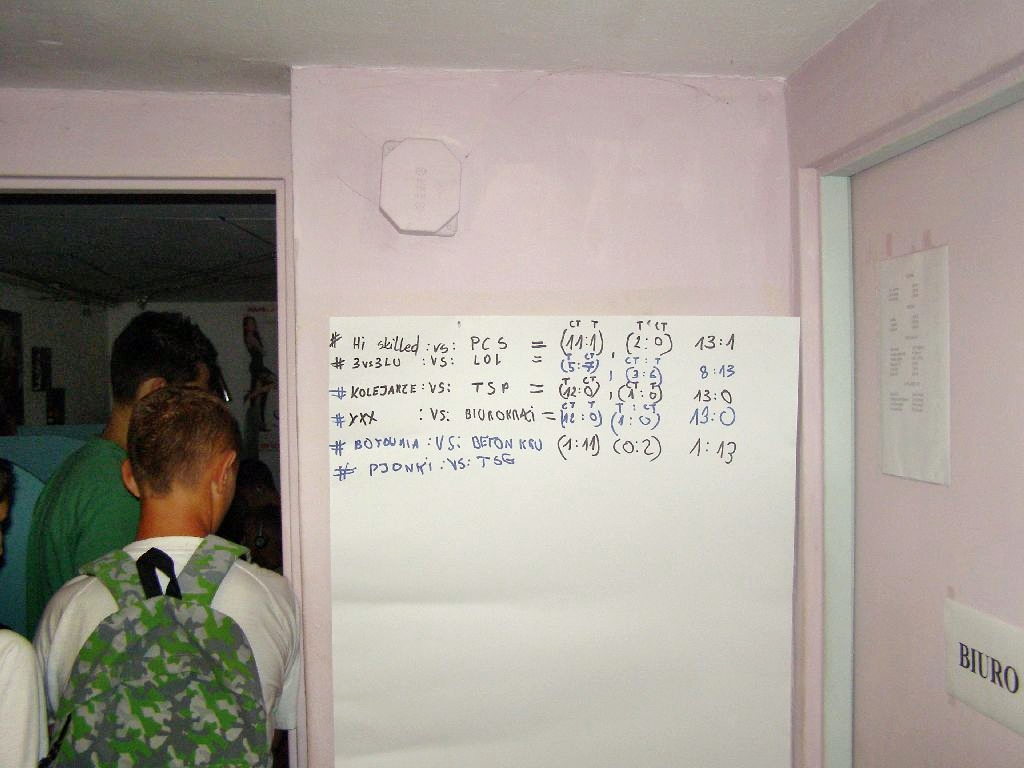 CT T T CT
# Hi skilled : vs: PCS = (11:1) , (2:0) 13:1
T CT CT : T
# 3vs3LU : VS: LOL = (5:7) , (3:6) 8:13
T CT CT T
# KOLEJARZE : VS: TSP = (12:0) , (1:0) 13:0
CT T T : CT
# YXX : VS: BIUROKRACI = (12:0) (1:0) 13:0
# BOTOWNIA : VS: BETON KRU (1:11) (0:2) 1:13
# PJONKI : VS: TSG
BIURO